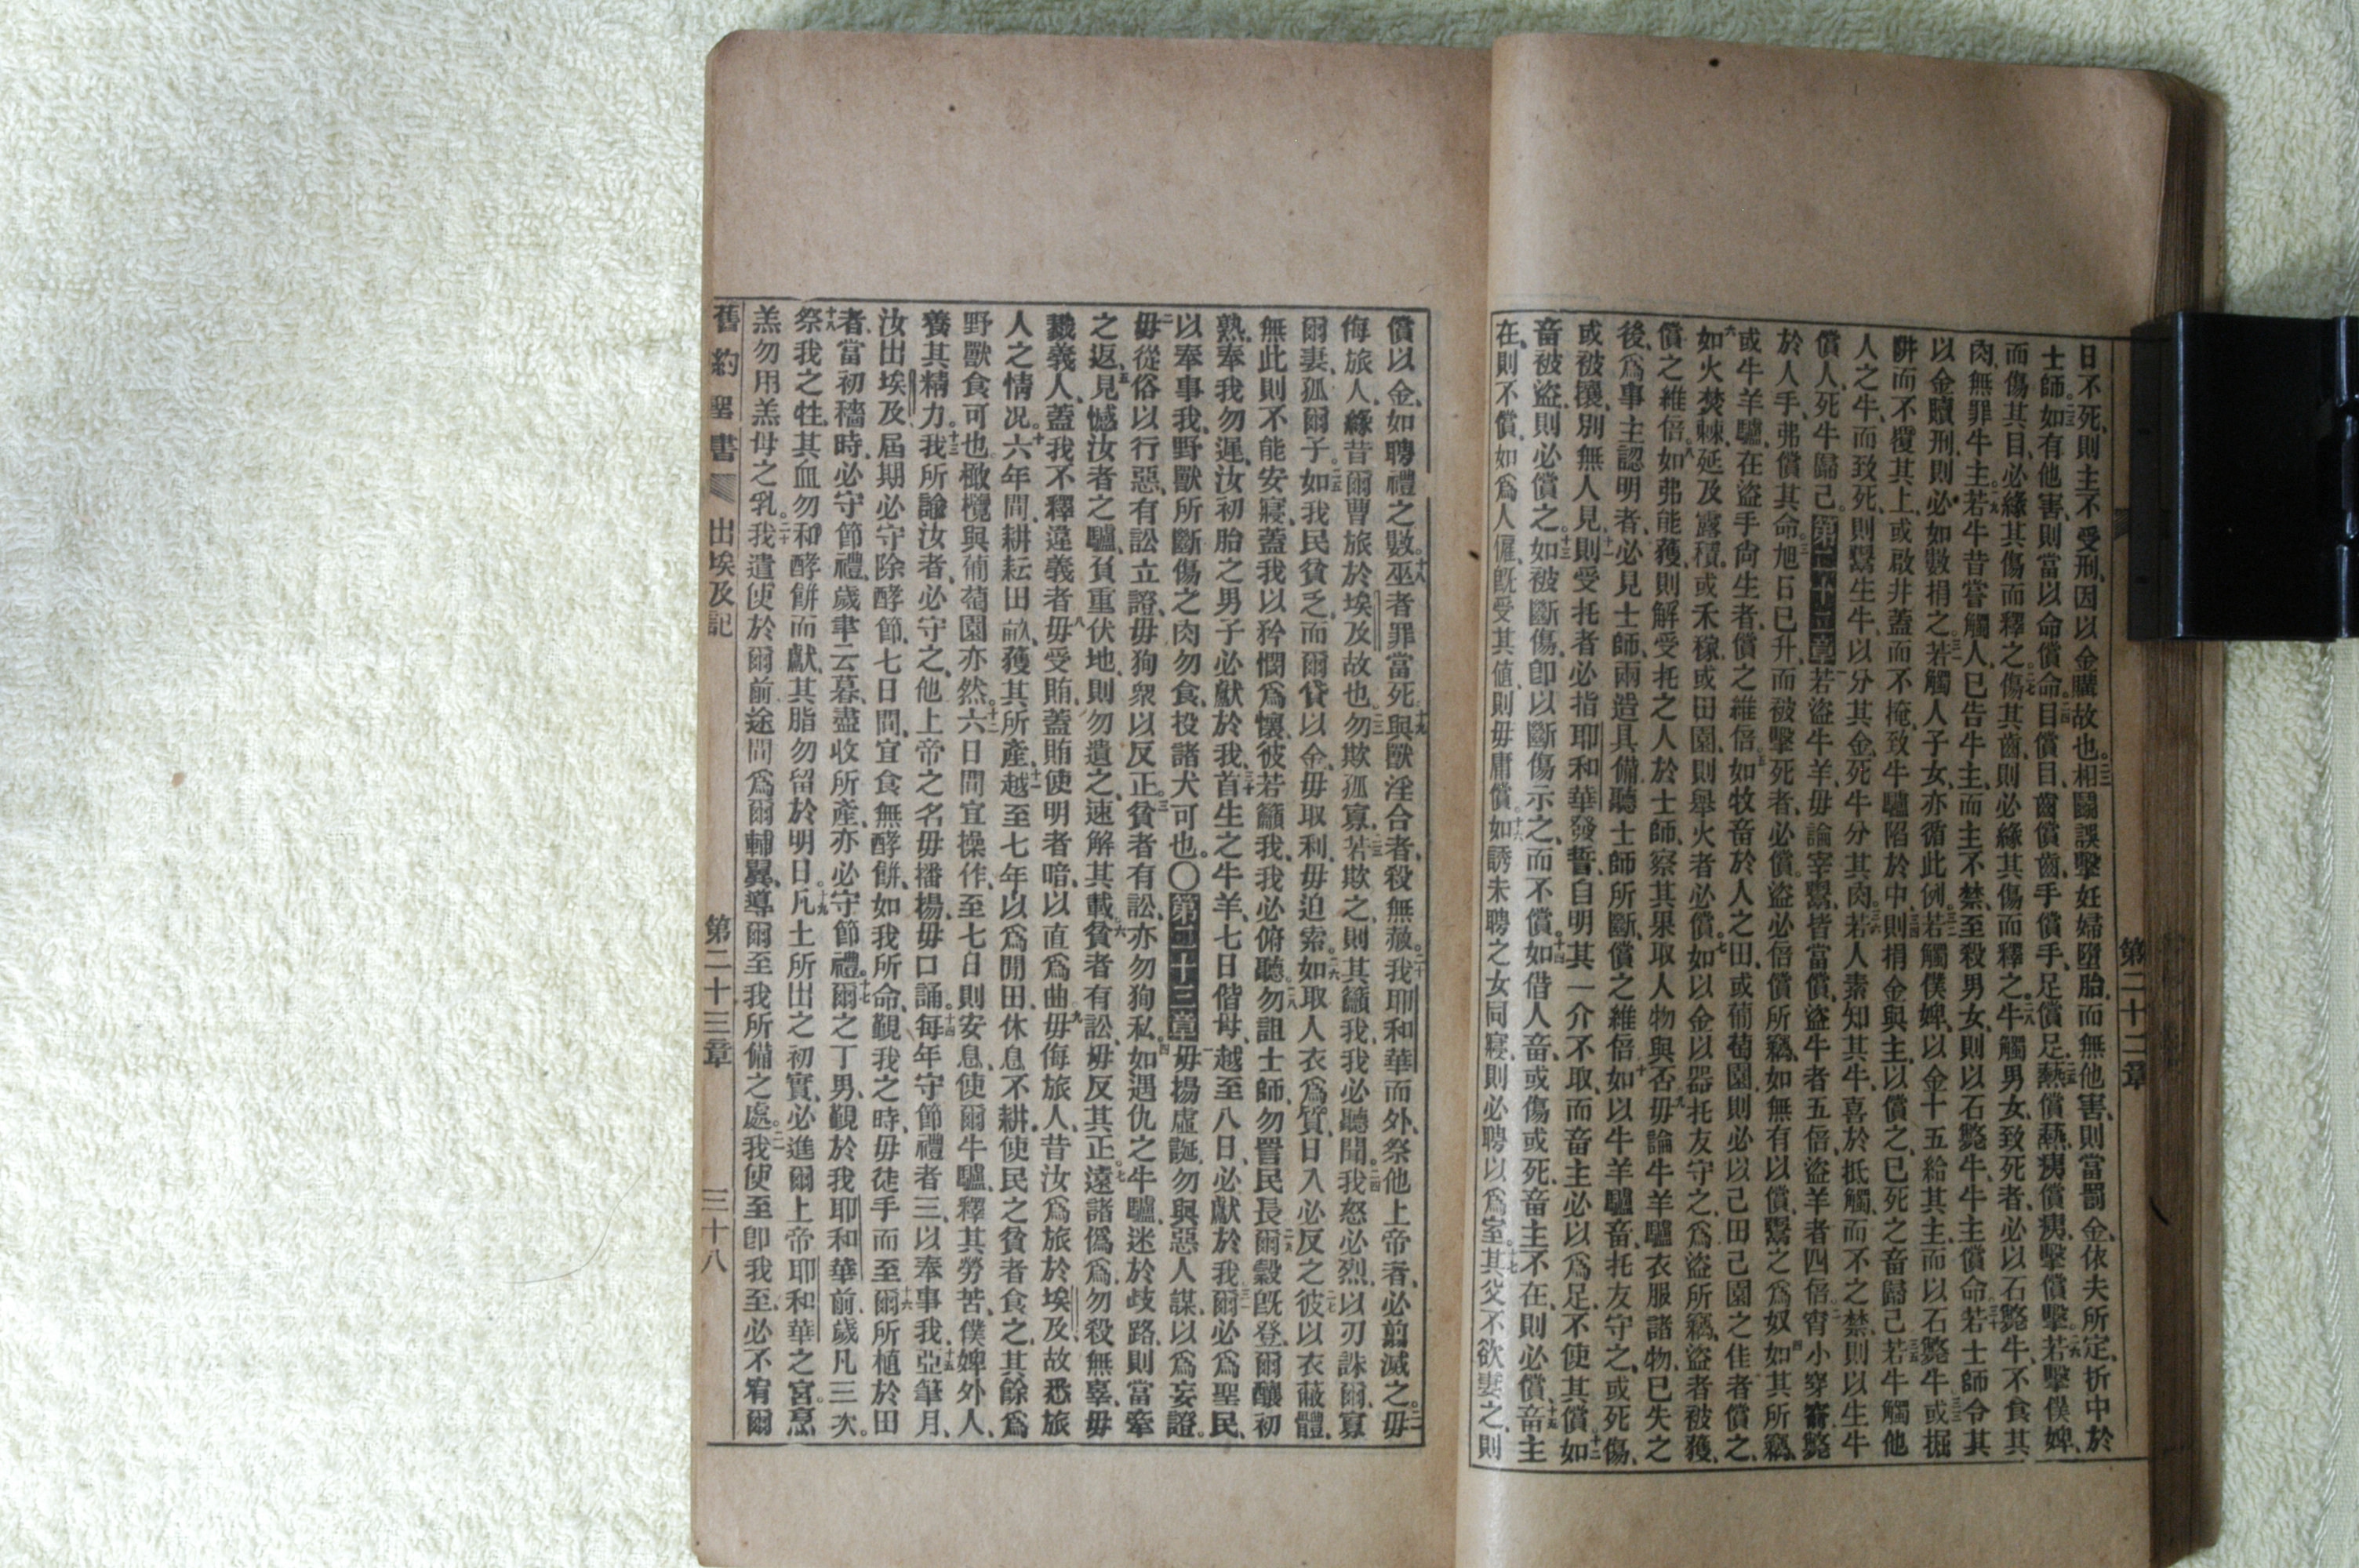 第二十二章
日不死、則主不受刑、因以金購故也。二二相鬭、誤擊妊婦墮胎、而無他害、則當罰金、依夫所定、折中於
士師。二三如有他害、則當以命償命。二四目償目、齒償齒、手償手、足償足、二五熱償熱、夷償夷、擊償擊。二六若擊僕婢、
而傷其目、必緣其傷而釋之。二七傷其齒、則必緣其傷而釋之。二八牛觸男女、致死者、必以石斃牛、不食其
肉、無罪牛主。二九若牛昔嘗觸人、已告牛主、而主不禁、至殺男女、則以石斃牛、牛主償命。三十若士師令其
以金贖刑、則必如數捐之。三一若觸人子女、亦循此例。三二若觸僕婢、以金十五給其主、而以石斃牛。三三或掘
阱而不覆其上、或啟井蓋而不掩、致牛驢陷於中、三四則捐金與主、以償之、已死之畜歸己。三五若牛觸他
人之牛、而致死、則鬻生牛、以分其金、死牛分其肉。三六若人素知其牛、喜於抵觸、而不之禁、則以生牛
償人、死牛歸己。第二十二章一若盜牛羊、毋論宰鬻、皆當償、盜牛者五倍、盜羊者四倍。二宵小穿窬、斃
於人手、弗償其命。三旭日已升、而被擊死者、必償。盜必倍償所竊、如無有以償、鬻之為奴。四如其所竊、
或牛羊驢、在盜手尚生者、償之維倍。五如牧畜於人之田、或葡萄園、則必以己田己園之佳者償之。
六如火焚棘、延及露積、或禾稼、或田園、則舉火者必償。七如以金以器托友守之、為盜所竊、盜者被獲、
償之維倍。八如弗能獲、則解受托之人於士師、察其果取人物與否。九毋論牛羊驢衣服諸物、已失之
後、為事主認明者、必見士師、兩造具備、聽士師所斷、償之維倍。十如以牛羊驢畜、托友守之、或死傷、
或被攘、別無人見、十一則受托者必指耶和華發誓、自明其一介不取、而畜主必以為足、不使其償。十二如
畜被盜、則必償之。十三如被斷傷、卽以斷傷示之、而不償。十四如借人畜、或傷或死、畜主不在、則必償。十五畜主
在、則不償、如為人僱、旣受其値、則毋庸償。十六如誘未聘之女同寢、則必聘以為室。十七其父不欲妻之、則
償以金、如聘禮之數。十八巫者罪當死。十九與獸淫合者、殺無赦。二十我耶和華而外、祭他上帝者、必翦滅之。二一毋
侮旅人、緣昔爾曹旅於埃及故也。二二勿欺孤寡。二三若欺之、則其籲我、我必聽聞。二四我怒必烈、以刃誅爾、寡
爾妻、孤爾子。二五如我民貧乏、而爾貸以金、毋取利、毋迫索。二六如取人衣為質、日入必反之。二七彼以衣蔽體、
無此則不能安寢、蓋我以矜憫為懷、彼若籲我、我必俯聽。二八勿詛士師、勿詈民長。二九爾穀旣登、爾釀初
熟、奉我勿遲、汝初胎之男子、必獻於我。三十首生之牛羊、七日偕母、越至八日、必獻於我。三一爾必為聖民、
以奉事我、野獸所斷傷之肉勿食、投諸犬可也。〇第二十三章一毋揚虛誕、勿與惡人謀、以為妄證。
二毋從俗以行惡、有訟立證、毋狥衆以反正。三貧者有訟、亦勿狥私。四如遇仇之牛驢、迷於歧路、則當牽
之返。五見憾汝者之驢、負重伏地、則勿遺之、速解其載。六貧者有訟、毋反其正。七遠諸僞為、勿殺無辜、毋
戮義人、蓋我不釋違義者。八毋受賄、蓋賄使明者暗、以直為曲。九毋侮旅人、昔汝為旅於埃及、故悉旅
人之情况。十六年間、耕耘田畝、穫其所產。十一越至七年、以為閒田、休息不耕、使民之貧者食之、其餘為
野獸食可也、橄欖與葡萄園亦然。十二六日間宜操作、至七日則安息、使爾牛驢、釋其勞苦、僕婢外人、
養其精力。十三我所諭汝者、必守之、他上帝之名、毋播揚、毋口誦。十四每年守節禮者三、以奉事我。十五亞筆月、
汝出埃及、屆期必守除酵節、七日間、宜食無酵餅、如我所命、覲我之時、毋徒手而至。十六爾所植於田
者、當初穡時、必守節禮、歲聿云暮、盡收所產、亦必守節禮。十七爾之丁男、覲於我耶和華前、歲凡三次。
十八祭我之牲、其血勿和酵餅而獻、其脂勿留於明日。十九凡土所出之初實、必進爾上帝耶和華之宮。烹
羔勿用羔母之乳。二十我遣使於爾前、途間為爾輔翼、導爾至我所備之處。二一我使至卽我至、必不宥爾
舊約聖書 出埃及記 第二十三章 三十八